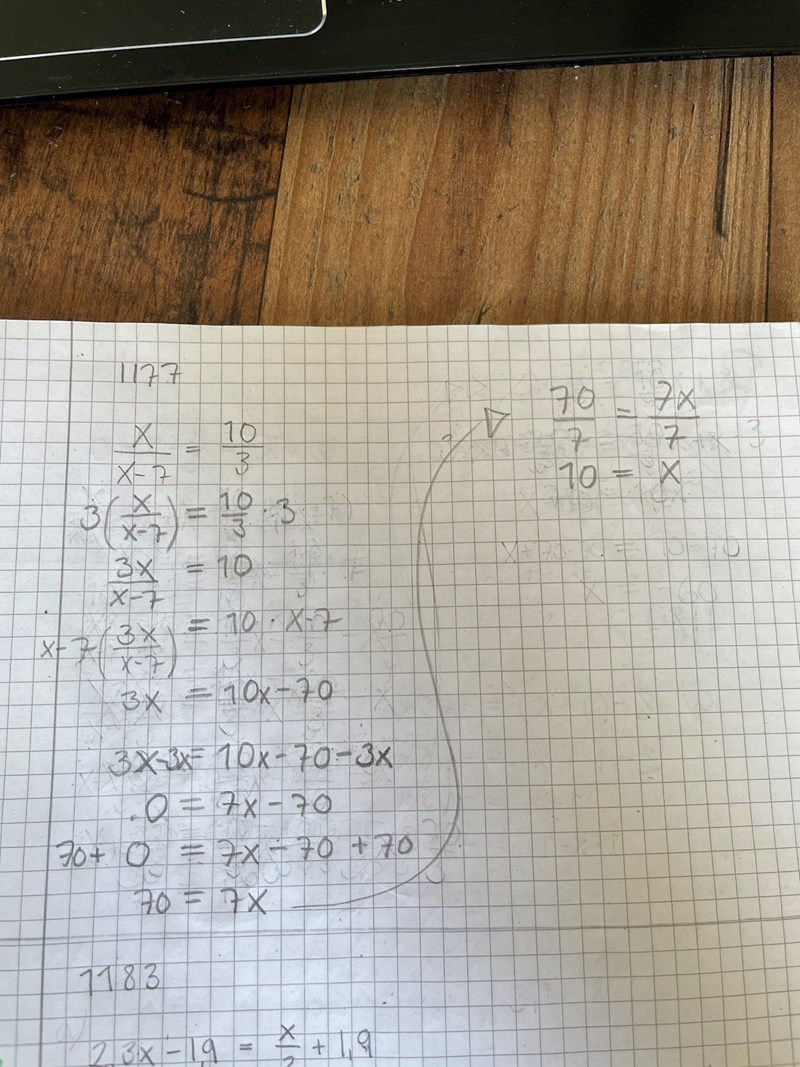 1177
x/(x-7) = 10/3
3(x/(x-7)) = 10/3 · 3
3x/(x-7) = 10
x-7(3x/(x-7)) = 10 · x-7
3x = 10x-70
3x-3x= 10x-70-3x
0 = 7x-70
70+ 0 = 7x-70 +70
70 = 7x
70/7 = 7x/7
10 = x
1183
2,3x-1,9 = x/2 + 1,9